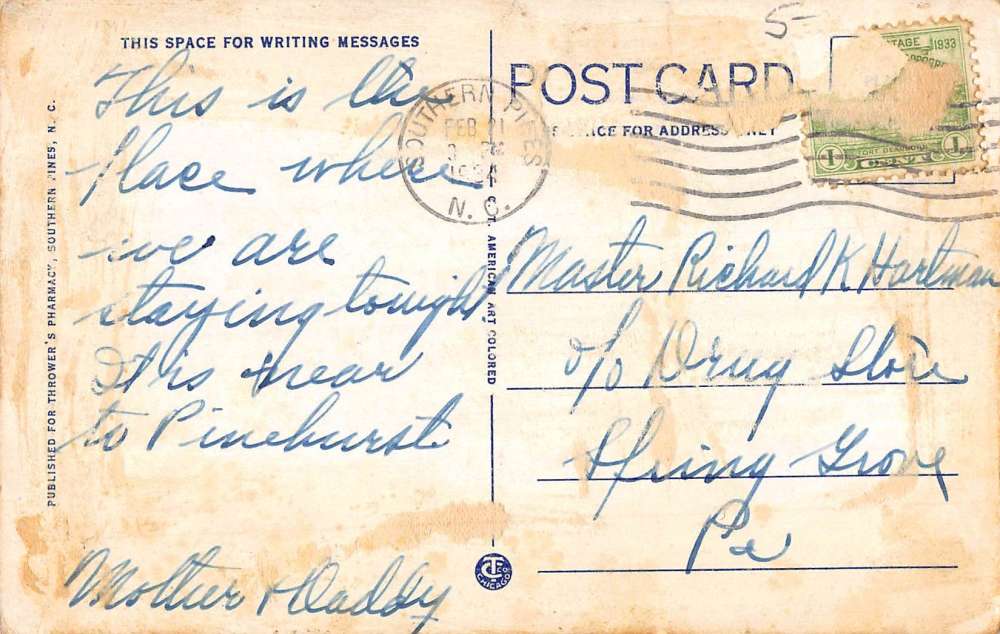 THIS SPACE FOR WRITING MESSAGES
This is the
place where
we are
staying tonight
It is near
to Pinehurst
Mother & Daddy
PUBLISHED FOR THROWER'S PHARMACY, SOUTHERN PINES, N. C.
C. T. AMERICAN ART COLORED
CHICAGO
POST CARD
FOR ADDRESS
5-
SOUTHERN PINES
FEB 21
N. C.
1933
1 CENT 1
Master Richard K Hartman
c/o Drug Store
Spring Grove
Pa